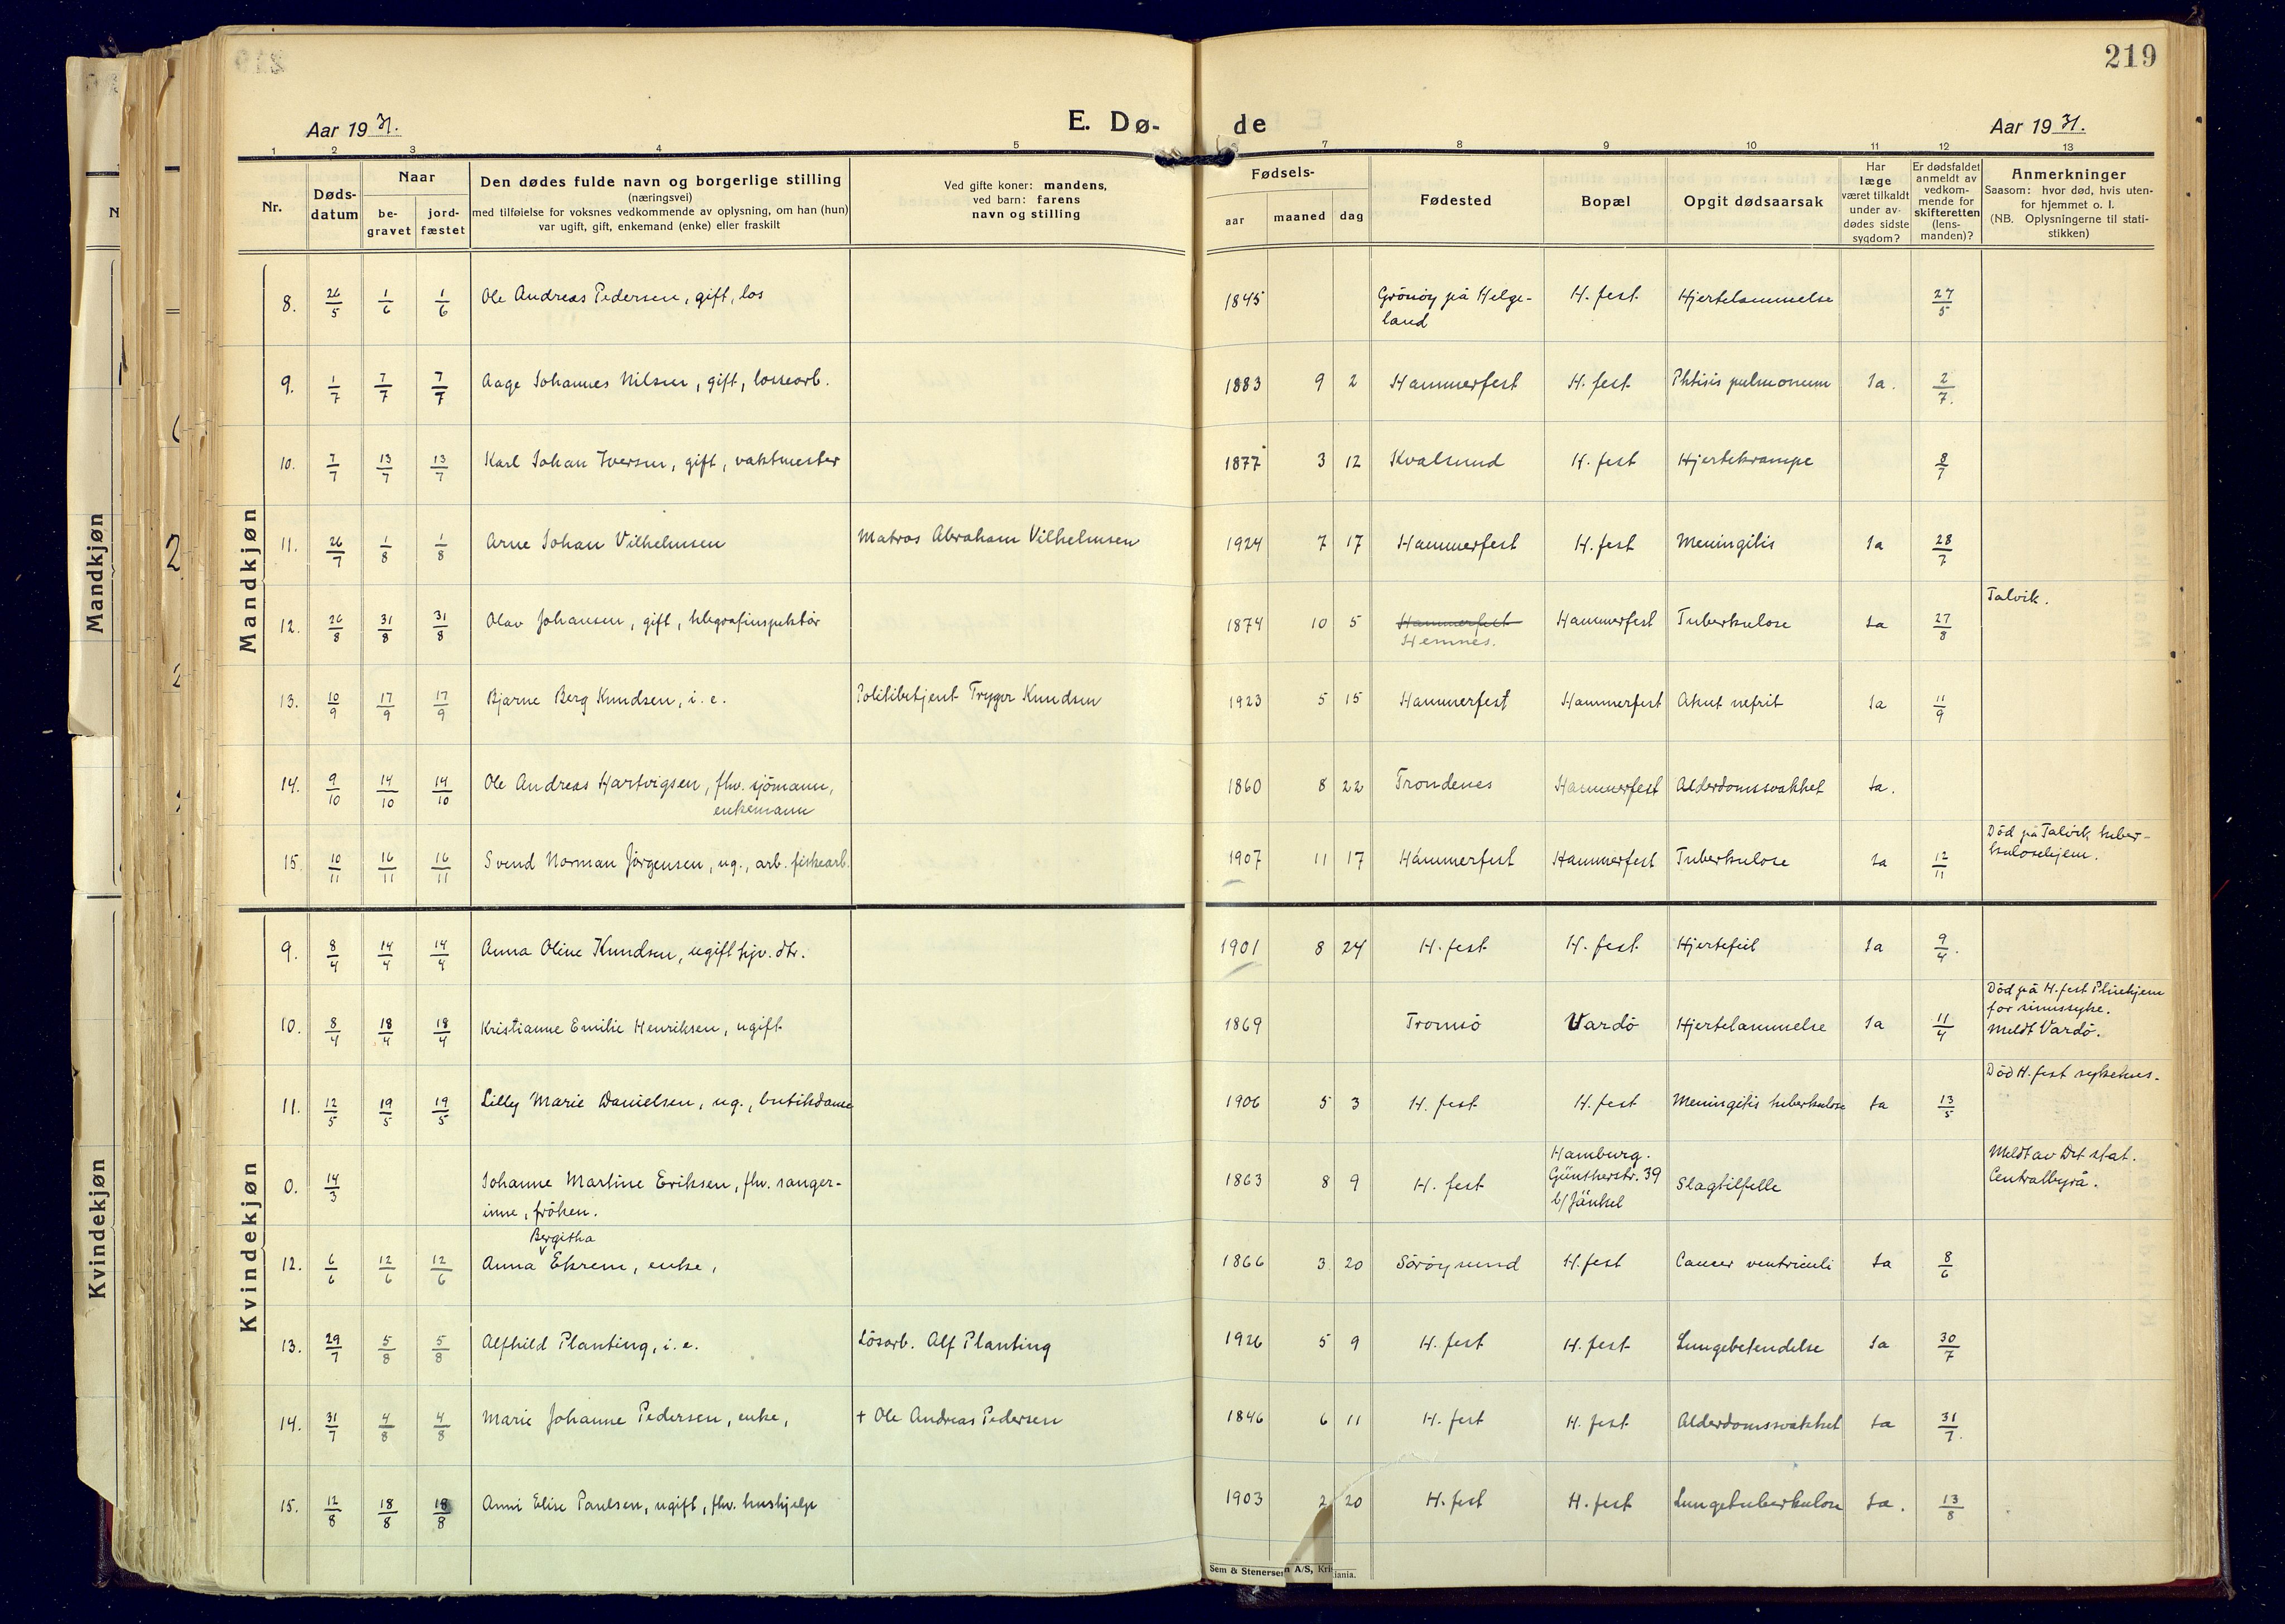 219
Aar 1931.
E. Dø-
de
Aar 1931.
1 2 3 4 5 6 7 8 9 10 11 12 13
Nr.
Døds-
datum
Naar
be-
gravet
jord-
fæstet
Den dødes fulde navn og borgerlige stilling
(næringsvei)
med tilføielse for voksnes vedkommende av oplysning, om han (hun)
var ugift, gift, enkemand (enke) eller fraskilt
Ved gifte koner: mandens,
ved barn: farens
navn og stilling
Fødsels-
aar
maaned
dag
Fødested
Bopæl
Opgit dødsaarsak
Har
læge
været tilkaldt
under av-
dødes sidste
sygdom?
Er dødsfaldet
anmeldt av
vedkom-
mende for
skifteretten
(lens-
manden)?
Anmerkninger
Saasom: hvor død, hvis uten-
for hjemmet o. l.
(NB. Oplysningerne til stati-
stikken)
Mandkjøn
8. 26/5 1/6 1/6 Ole Andreas Pedersen, gift, los 1845 Grönöy på Helge-
land H. fest Hjertelammelse 27/5
9. 1/7 7/7 7/7 Aage Johannes Nilsen, gift, lossearb. 1883 9 2 Hammerfest H. fest Phtisis pulmonum Ja. 2/7.
10. 7/7 13/7 13/7 Karl Johan Iversen, gift, vaktmester 1877 3 12 Kvalsund H. fest Hjertekrampe 8/7
11. 26/7 1/8 1/8 Arne Johan Vilhelmsen Matros Abraham Vilhelmsen 1924 7 17 Hammerfest H. fest Meningitis Ja 28/7
12. 26/8 31/8 31/8 Olav Johansen, gift, telegrafinspektör 1874 10 5 Hammerfest
Hemnes. Hammerfest Tuberkulose Ja 27/8 Talvik.
13. 10/9 17/9 17/9 Bjarne Berg Knudsen, i. e. Politibetjent Trygve Knudsen 1923 5 15 Hammerfest Hammerfest Akut nefrit Ja 11/9
14. 9/10 14/10 14/10 Ole Andreas Hartvigsen, fhv. sjömann,
enkemann 1860 8 22 Trondenes Hammerfest Alderdomssvakhet Ja.
15. 10/11 16/11 16/11 Svend Norman Jörgensen, ug., arb. fiskearb. 1907 11 17 Hammerfest Hammerfest Tuberkulose Ja 12/11 Död på Talvik tuber-
kulosehjem.
Kvindekjøn
9. 8/4 14/4 14/4 Anna Oline Knudsen, ugift hjv. dtr. 1901 8 24 H. fest H. fest Hjertefeil Ja 9/4.
10. 8/4 18/4 18/4 Kristianne Emilie Henriksen, ugift 1869 Tromsö Vardö Hjertelammelse Ja 11/4 Död på H. fest Pleiehjem
for sinnssyke.
Meldt Vardö.
11. 12/5 19/5 19/5 Lilly Marie Danielsen, ug., butikdame 1906 5 3 H. fest H. fest Meningitis tuberkulose Ja 13/5 Död H. fest sykehus.
0. 14/3 Johanne Martine Eriksen, fhv. sanger-
inne, fröken. 1863 8 9 H. fest Hamburg.
Güntherstr. 39
b/ Jänkel Slagtilfelle Meldt av Det stat.
Centralbyrå.
Bergitha
12. 6/6 12/6 12/6 Anna Ekrem, enke, 1866 3 20 Söröysund H. fest Cancer ventriculi Ja 8/6
13. 29/7 5/8 5/8 Alfhild Planting, i. e. Lösarb. Alf Planting 1926 5 9 H. fest H. fest Lungebetendelse Ja 30/7
14. 31/7 4/8 4/8 Marie Johanne Pedersen, enke, + Ole Andreas Pedersen 1846 6 11 H. fest H. fest Alderdomssvakhet Ja 31/7.
15. 12/8 18/8 18/8 Anni Elise Paulsen, ugift, fhv. hushjelp 1903 2 20 H. fest H. fest Lungetuberkulose Ja. 13/8
Sem & Stenersen A/S, Kristiania.
Mandkjøn
Kvindekjøn